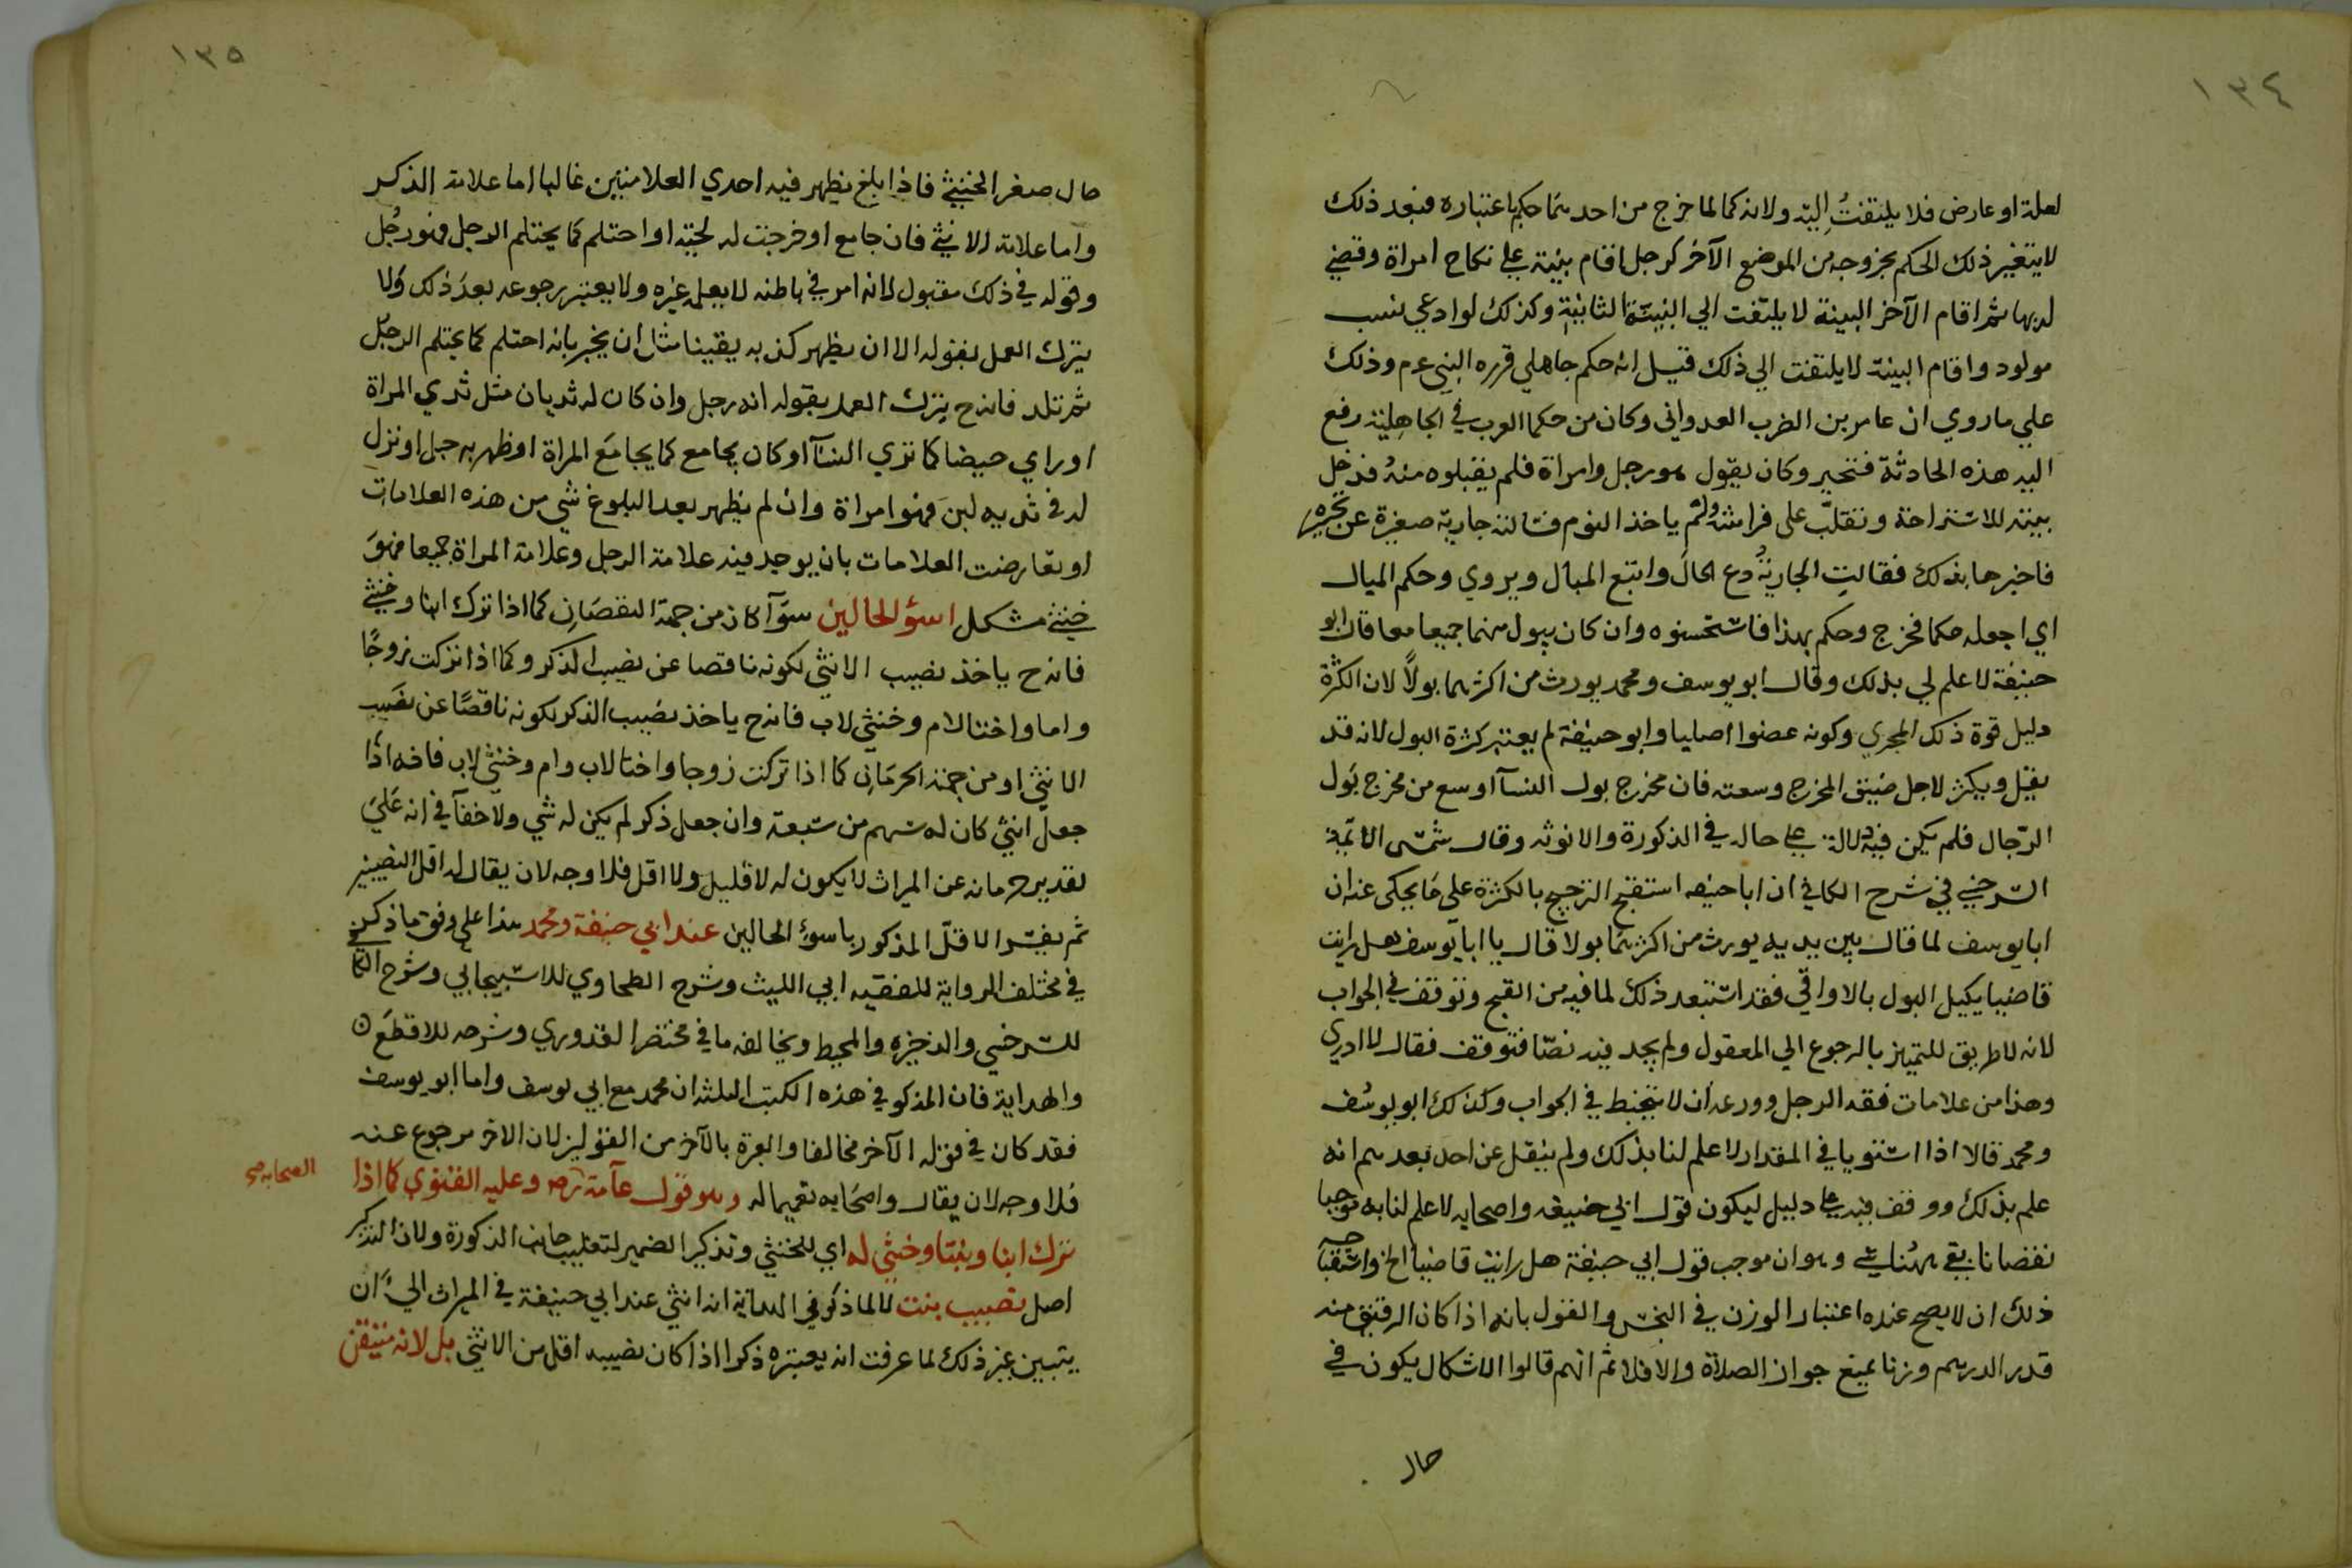 ١٣٤
لعلة او عارض فلا يلتفتُ اليه ولانه كما لما خرج من احديهما حكم باعتباره فبعد ذلك
لا يتغير ذلك الحكم بخروجه من الموضع الآخر كرجل اقام بينة على نكاح امراة وقضي
له بها ثم اقام الآخر البينة لا يلتفت الي البينة الثانية وكذلك لو ادعي نسب
مولود واقام البينة لا يلتفت الي ذلك قيل انه حكم جاهلي قرره النبي عم وذلك
علي ما روي ان عامر بن الظرب العدواني وكان من حكما العرب في الجاهِلية رفع
اليه هذه الحادثة فتحير وكان يقول هو رجل وامراة فلم يقبلوه منهُ فدخل
بيته للاستراحة وتقلبّ على فراشه ولم ياخذ النوم فسالته جارية صغيرة عن تحيره
فاخبرها بذلك فقالتِ الجاريةُ دع الحالَ واتبع المبال ويروي وحكم المبال
اي اجعله حكما فخرج وحكم بهذا فاستحسنوه وان كان يبول منهما جميعا معا قال ابو
حنيفة لا علم لي بذلك وقال ابو يوسف ومحمد يورث من اكثرهما بولاً لان الكثرة
دليل قوة ذلك المجري وكونه عضوا اصليا وابو حنيفة لم يعتبر كثرة البول لانه قد
يقل ويكثر لاجل ضيق المخرج وسعته فان مخرج بول النسآ اوسع من مخرج بَول
الرّجال فلم يكن فيه دلالة على حاله في الذكورة والانوثه وقال شمس الائمة
السرخسي في شرح الكافي ان ابا حنيفه استقبح الترجيح بالكثرة على مَا يحكى عنه ان
ابا يوسف لما قال بين يديه يورث من اكثرهمَا بولا قال يا ابا يوسف هل رايت
قاضيا يكيل البول بالاواقي فقد استبعد ذلك لما فيه من القبح وتوقف في الجواب
لانه لا طريق للتمييز بالرجوع الي المعقول ولم يجد فيه نصّا فتوقف فقال لا ادري
وهذا من علامات فقه الرجل وورعه ان لا يتخبط في الجواب وكذلك ابو يوسُف
ومحمد قالا اذا استويا في المقدار لا علم لنا بذلك ولم ينقل عن احد بعدهم انه
علم بذلك ووقف فيه على دليل ليكون قول ابي حنيفه واصحابه لا علم لنا به موجبا
نقصانا بقي هُنا شي وهو ان موجب قول ابي حنيفة هل رايت قاضيا الخ واستقباحه
ذلك ان لا يصح عنده اعتبار الوزن في النجس والقول بانه اذا كان الرقيق منه
قدر الدرهم وزنا يمنع جواز الصلاة والا فلا ثم انهم قالوا الاشكال يكون في
حال
١٣٥
حال صغر الخنثي فاذا بلغ يظهر فيه احدي العلامتين غالبا اما علامة الذكر
واما علامة الانثي فان جامع او خرجت له لحيته او احتلم كما يحتلم الرجل فهو رجُل
وقوله في ذلك مقبول لانه امر في باطنه لا يعلمه غيره ولا يعتبر رجوعه بعدَ ذلك ولا
يترك العمل بقوله الا ان يظهر كذبه يقينا مثل ان يخبر بانه احتلم كما يحتلم الرجل
ثم تلد فانه ح يترك العمل بقوله انه رجل وان كان له ثديان مثل ثدي المراة
او راي حيضا كما تري النسآ او كان يجامع كما يجامَع المراة او ظهر به حبل او نزل
له في ثدييه لبن فهو امراة وان لم يظهر بعد البلوغ شي من هذه العلامات
او تعارضت العلامات بان يوجد فيه علامة الرجل وعلامة المراة جميعا فهوَ
خنثي مشكل اسؤ الحالين سوَآ كان من جهة النقصَان كما اذا ترك ابنا وخنثي
فانه ح ياخذ نصيب الانثي لكونه ناقصا عن نصيب الذكر وكما اذا تركت زوجًا
واما واختا لام وخنثي لاب فانه ح ياخذ نصيب الذكر لكونه ناقصًا عن نصَيب
الانثي او من جهة الحرمَان كما اذا تركت زوجا واختا لاب وام وخنثي لاب فانه اذا
جعل انثي كان له سهم من سَبعة وان جعل ذكر لم يكن له شي ولا خفآ في انه عَلي
تقدير حرمانه عن الميراث لا يكون له لا قليل ولا اقل فلا وجه لان يقال له اقل النصيبين
ثم يفسّر الاقلّ المذكور باسوء الحالين عند ابي حنيفة ومحمد هذا على وفق ما ذكر
في مختلف الرواية للفقيه ابي الليث وشرح الطحاوي للاسبيجابي وشرح الكافي
للسرخسي والذخيره والمحيط ويخالفه ما في مختصر القدوري وشرحه للاقطعَ
والهداية فان المذكو في هذه الكتب الثلثه ان محمد مع ابي يوسف واما ابو يوسف
فقد كان في قوله الآخر مخالفا والعبرة بالآخر من القولين لان الاخر مرجوع عنه
فلا وجه لان يقال واصحَابه تعميما له وهو قول عآمة الصحابه رض وعليه الفتوي كما اذا
ترك ابنا وبنتا وخنثي له اي للخنثي وتذكير الضمير لتغليب جانب الذكورة ولان التذكير
اصل نصيب بنت لا لما ذكر في الهداية انه انثي عند ابي حنيفة في الميراث الي اَن
يتبين غير ذلك لما عرفت انه يعتبره ذكرا اذا كان نصيبه اقل من الانثي بل لانه متيقن